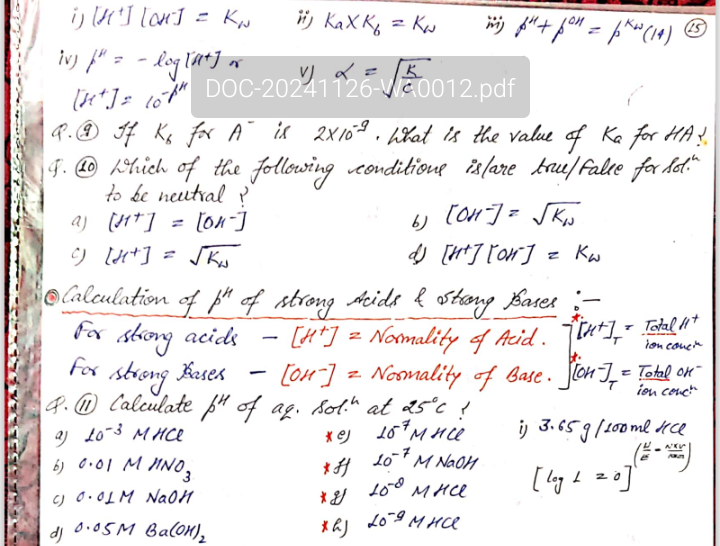 i) [H⁺] [OH⁻] = Kw   ii) Ka X Kb = Kw   iii) pH + pOH = pKw (14)   (15)
iv) pH = - log [H⁺] or   v) α = √(K/C)
[H⁺] = 10^-pH
DOC-20241126-WA0012.pdf
Q. (9) If Kb for A⁻ is 2X10⁻⁹. What is the value of Ka for HA?
Q. (10) Which of the following conditions is/are true/false for Sol.ⁿ
to be neutral ?
a) [H⁺] = [OH⁻]   b) [OH⁻] = √Kw
c) [H⁺] = √Kw   d) [H⁺] [OH⁻] = Kw
Calculation of pH of strong Acids & Strong Bases :-
For strong acids — [H⁺] = Normality of Acid. ] * [H⁺]T = Total H⁺ ion concⁿ
For strong Bases — [OH⁻] = Normality of Base. ] * [OH⁻]T = Total OH⁻ ion concⁿ
Q. (11) Calculate pH of aq. Sol.ⁿ at 25°C ?
a) 10⁻³ M HCl   * e) 10⁻⁷ M HCl   i) 3.65 g / 100 ml HCl
b) 0.01 M HNO₃   * f) 10⁻⁷ M NaOH   (W/E = NXV/1000)
c) 0.01M NaOH   * g) 10⁻⁸ M HCl   [log 1 = 0]
d) 0.05M Ba(OH)₂   * h) 10⁻⁹ M HCl